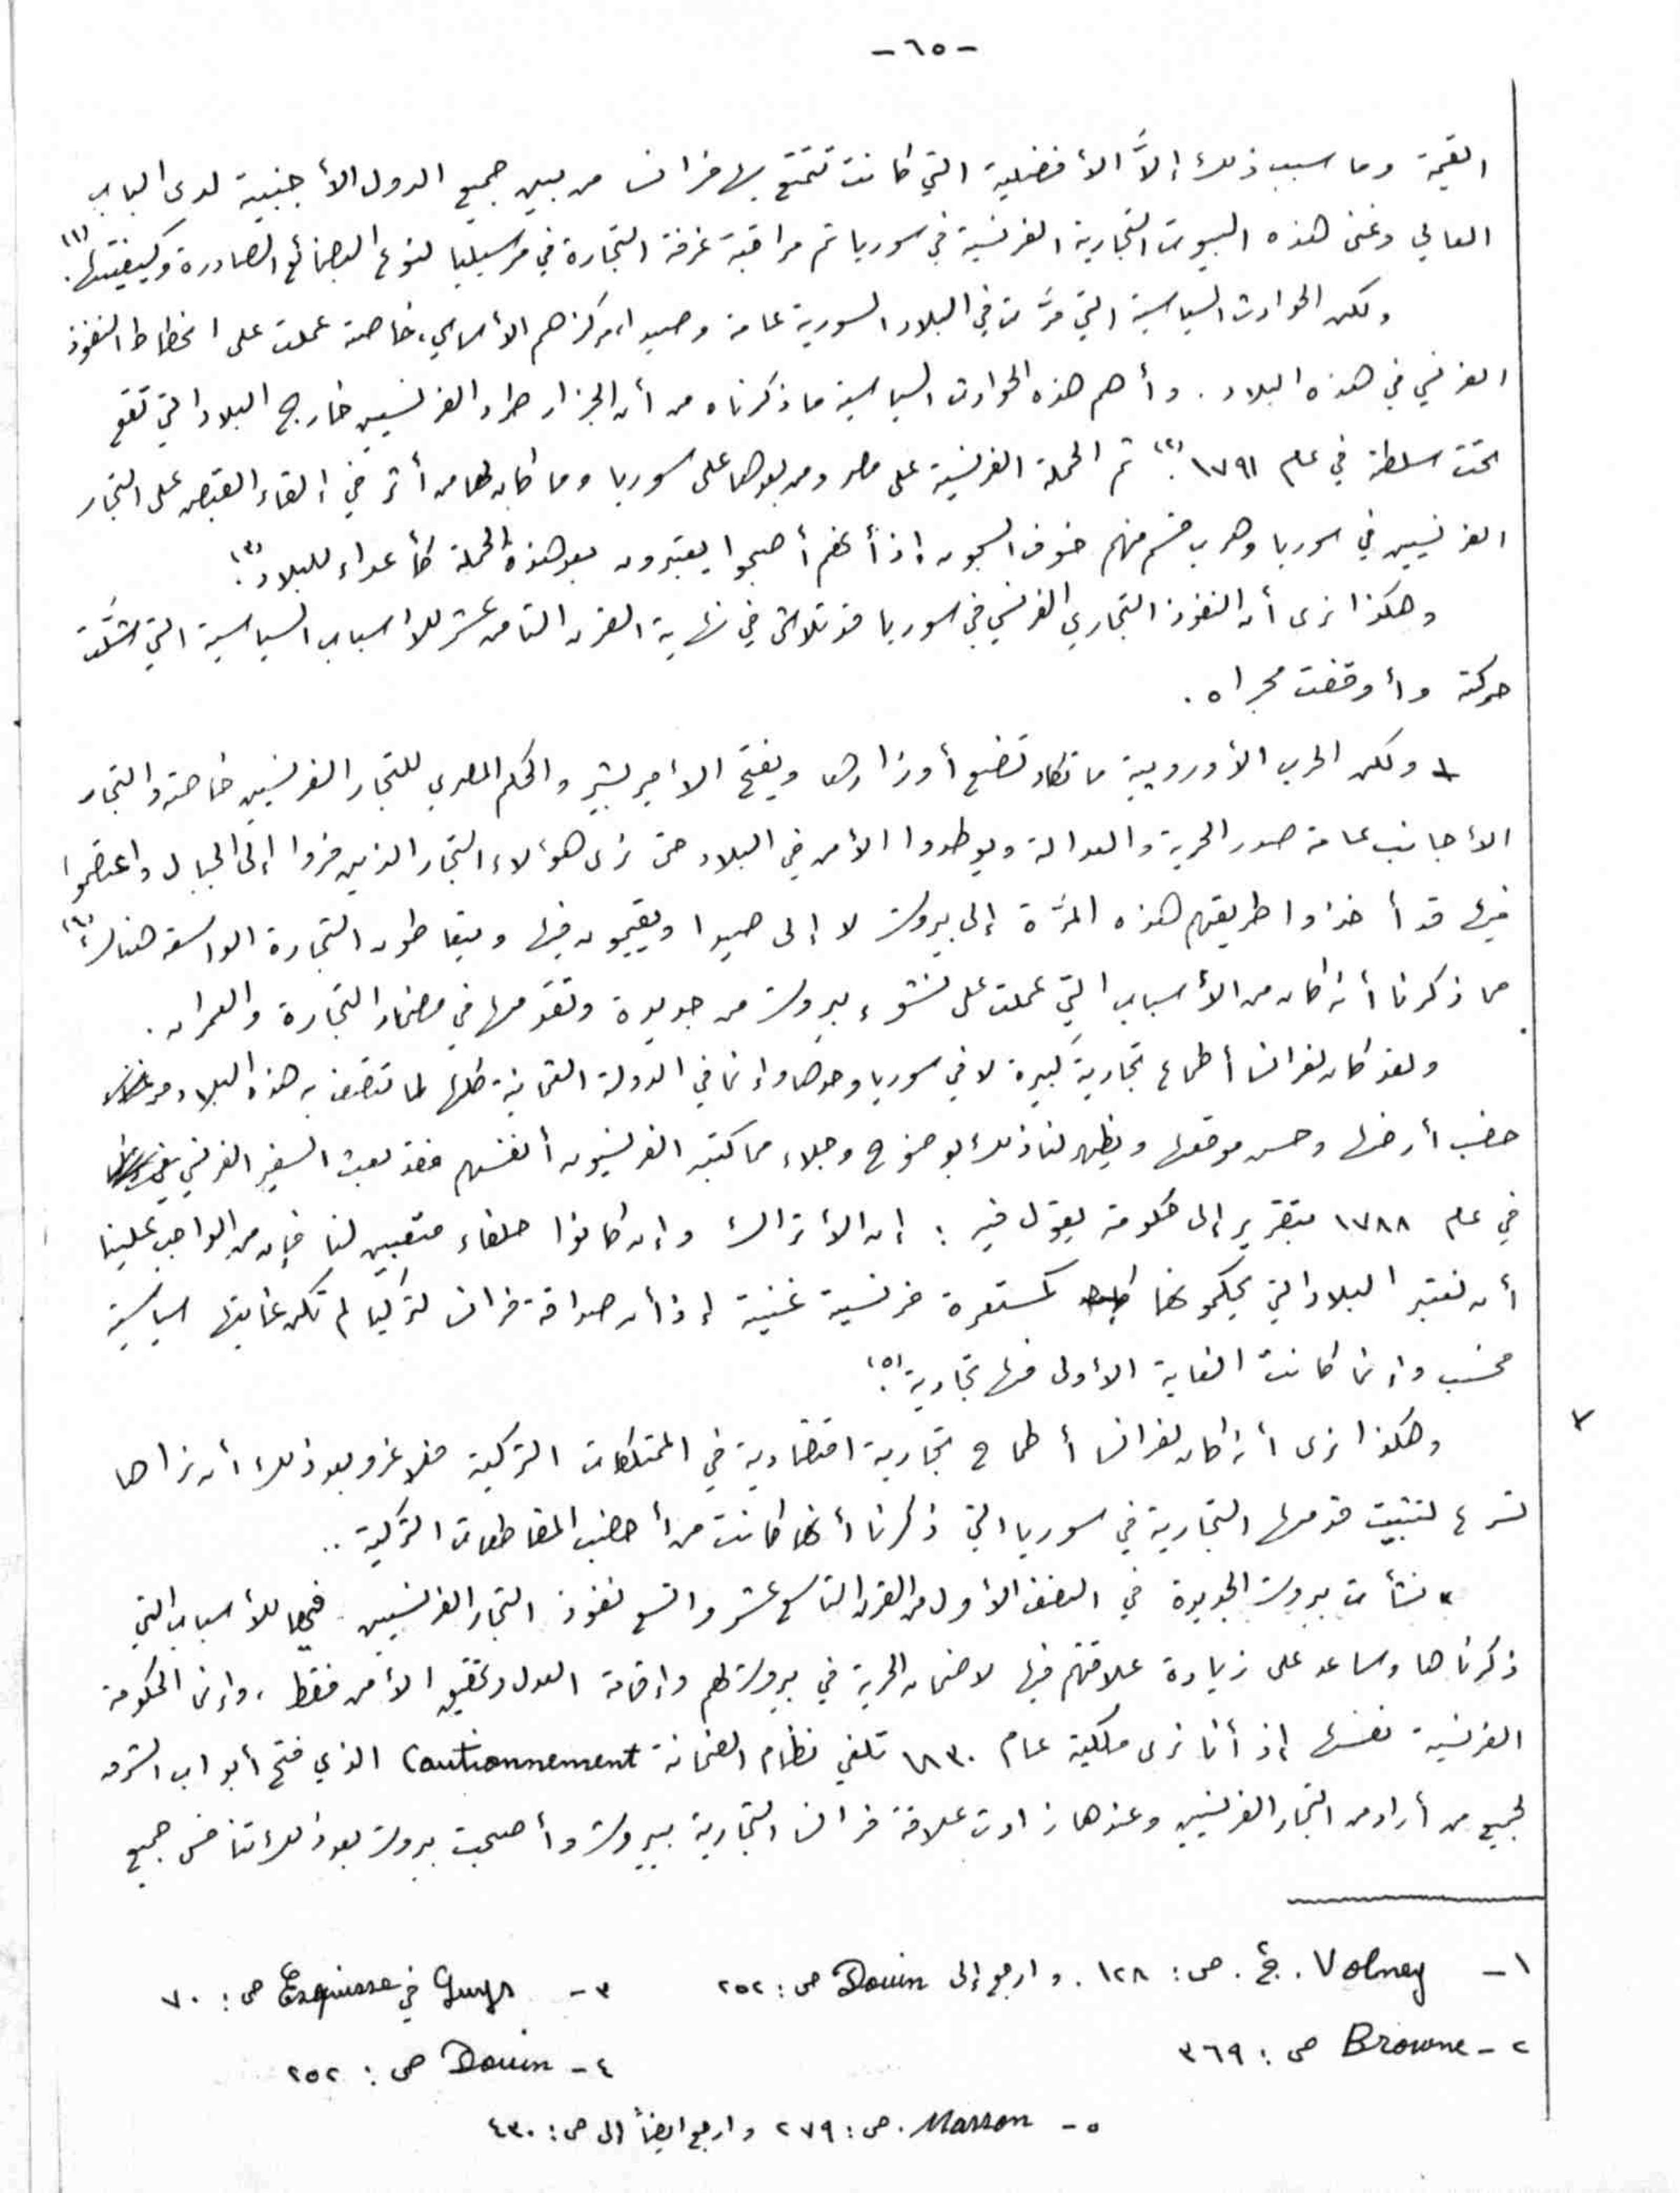 -٦٥-
القيمة وما سبب ذلك إلاَّ الأفضلية التي كانت تتمتع بها فرانسا من بين جميع الدول الأجنبية لدى الباب
العالي وغنى هذه البيوت التجارية الفرنسية في سوريا ثم مراقبة غرفة التجارة في مرسيليا لنوع البضائع الصادرة وكيفيتها (١).
ولكن الحوادث السياسية التي مرَّت في البلاد السورية عامة وصيدا، مركزهم الأساسي، خاصة عملت على انحطاط النفوذ
الفرنسي في هذه البلاد. وأهم هذه الحوادث السياسية ما ذكرناه من أن الجزار طرد الفرنسيين خارج البلاد التي تقع
تحت سلطته في عام ١٧٩١ (٢). ثم الحملة الفرنسية على مصر ومن بعدها على سوريا وما كان لها من أثر في إلقاء القبض على التجار
الفرنسيين في سوريا وهرب قسم منهم خوف السجون إذ أنهم أصبحوا يعتبرون بعد هذه الحملة كأعداء للبلاد (٣).
وهكذا نرى أن النفوذ التجاري الفرنسي في سوريا قد تلاشى في نهاية القرن الثامن عشر للاسباب السياسية التي شلَّت
حركته وأوقفت مجراه.
ولكن الحرب الأوروبية ما تكاد تضع أوزارها ويفتح الأمير بشير والحكم المصري للتجار الفرنسيين خاصة والتجار
الأجانب عامة صدر الحرية والعدالة ويوطدوا الأمن في البلاد حتى نرى هؤلاء التجار الذين فروا إلى الجبال واعتصموا
فيها قد أخذوا طريقهم هذه المرَّة إلى بيروت لا إلى صيدا ويقيمون فيها ويتعاطون التجارة الواسعة هناك (٤)
مما ذكرنا أنه كان من الأسباب التي عملت على نشوء بيروت من جديدة وتقدمها في مضمار التجارة والعمران.
ولقد كان لفرانسا أطماع تجارية كبيرة لا في سوريا وحدها وإنما في الدولة العثمانية كلها لما تتصف به هذه البلاد من
خصب أرضها وحسن موقعها ويظهر لنا ذلك بوضوح وجلاء مما كتبه الفرنسيون أنفسهم فقد بعث السفير الفرنسي
في عام ١٧٨٨ بتقرير إلى حكومته يقول فيه : إن الأتراك وإن كانوا حلفاء متعبين لنا فإن من الواجب علينا
أن نعتبر البلاد التي يحكمونها كمستعمرة فرنسية غنية إذ أن صداقة فرانسا لتركيا لم تكن غايتها سياسية
فحسب وإنما كانت الغاية الأولى منها تجارية (٥).
وهكذا نرى أنه كان لفرانسا أطماح تجارية اقتصادية في الممتلكات التركية فلا غرو بعد ذلك أن نراها
تسرع لتثبيت قدمها التجارية في سوريا التي ذكرنا أنها كانت من أخصب المقاطعات التركية ..
نشأت بيروت الجديدة في النصف الأول من القرن التاسع عشر واتسع نفوذ التجار الفرنسيين فيها للأسباب التي
ذكرناها وساعد على زيادة علاقتهم فيها لا ضمان الحرية في بيروت لهم وإقامة العدل وتحقيق الأمن فقط، وإنما الحكومة
الفرنسية نفسها إذ أنا نرى ملكية عام ١٨٣٠ تلغي نظام الضمانة Cautionnement الذي فتح أبواب الشرق
لجميع من أراد من التجار الفرنسيين وعندها زادت علاقة فرانسا التجارية ببيروت وأصبحت بيروت بعد ذلك تنافس جميع
١- Volney. ج٢. ص: ١٢٨. وارجع إلى Douin ص: ٢٥٢
٣- Guys في Esquisse ص: ٧٠
٢- Browne ص: ٣٦٩
٤- Douin ص: ٢٥٢
٥- Masson. ص: ٢٧٩ وارجع ايضاً إلى ص: ٤٣٠